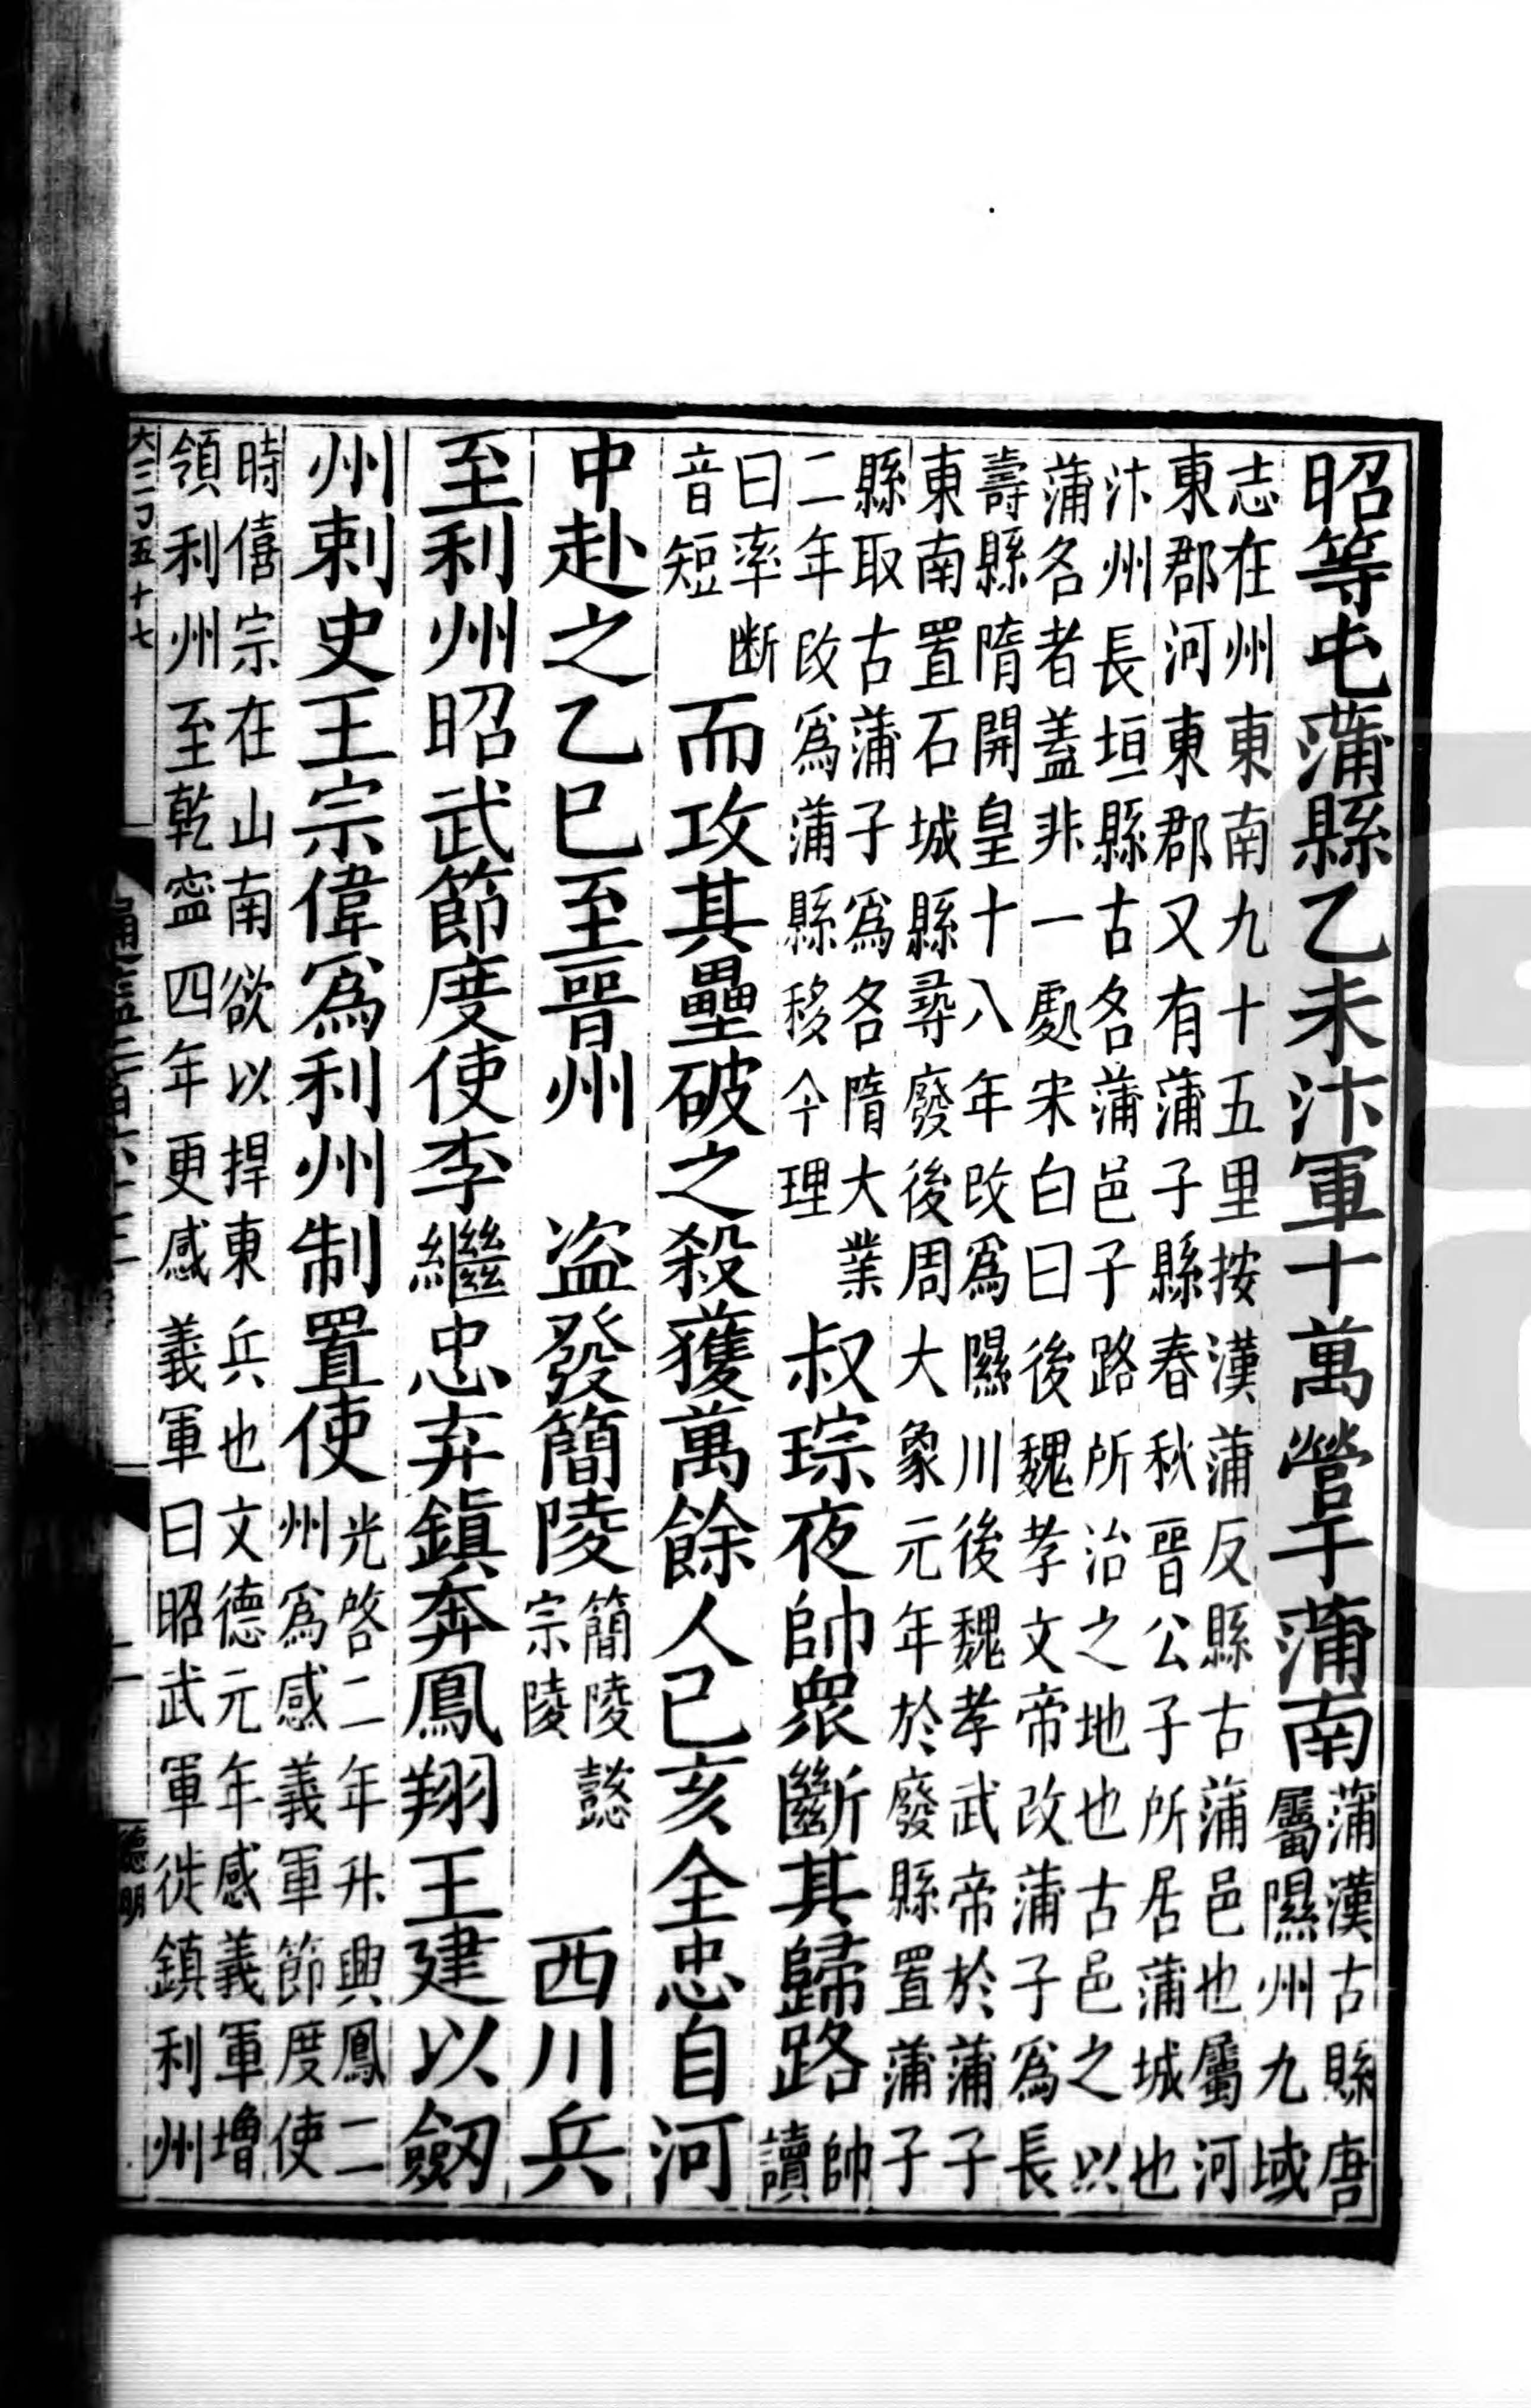 昭等屯蒲縣乙未汴軍十萬營于蒲南蒲漢古縣唐
屬隰州九域
志在州東南九十五里按漢蒲反縣古蒲邑也屬河
東郡河東東郡又有蒲子縣春秋晉公子所居蒲城也
汴州長垣縣古名蒲邑子路所治之地也古邑之以
蒲名者蓋非一處宋白曰後魏孝文帝改蒲子爲長
壽縣隋開皇十八年改爲隰川後魏孝武帝於蒲子
東南置石城縣尋廢後周大象元年於廢縣置蒲子
縣取古蒲子爲名隋大業
二年改爲蒲縣移今理
叔琮夜帥衆斷其歸路帥
讀
曰率断
音短
而攻其壘破之殺獲萬餘人己亥全忠自河
中赴之乙巳至晉州 盗發簡陵簡陵懿
宗陵
西川兵
至利州昭武節度使李繼忠弃鎮奔鳳翔王建以劒
州刺史王宗偉爲利州制置使光啓二年升興鳳二
州爲感義軍節度使
時僖宗在山南欲以捍東兵也文德元年感義軍增
領利州至乾寧四年更感義軍曰昭武軍徙鎮利州
德明